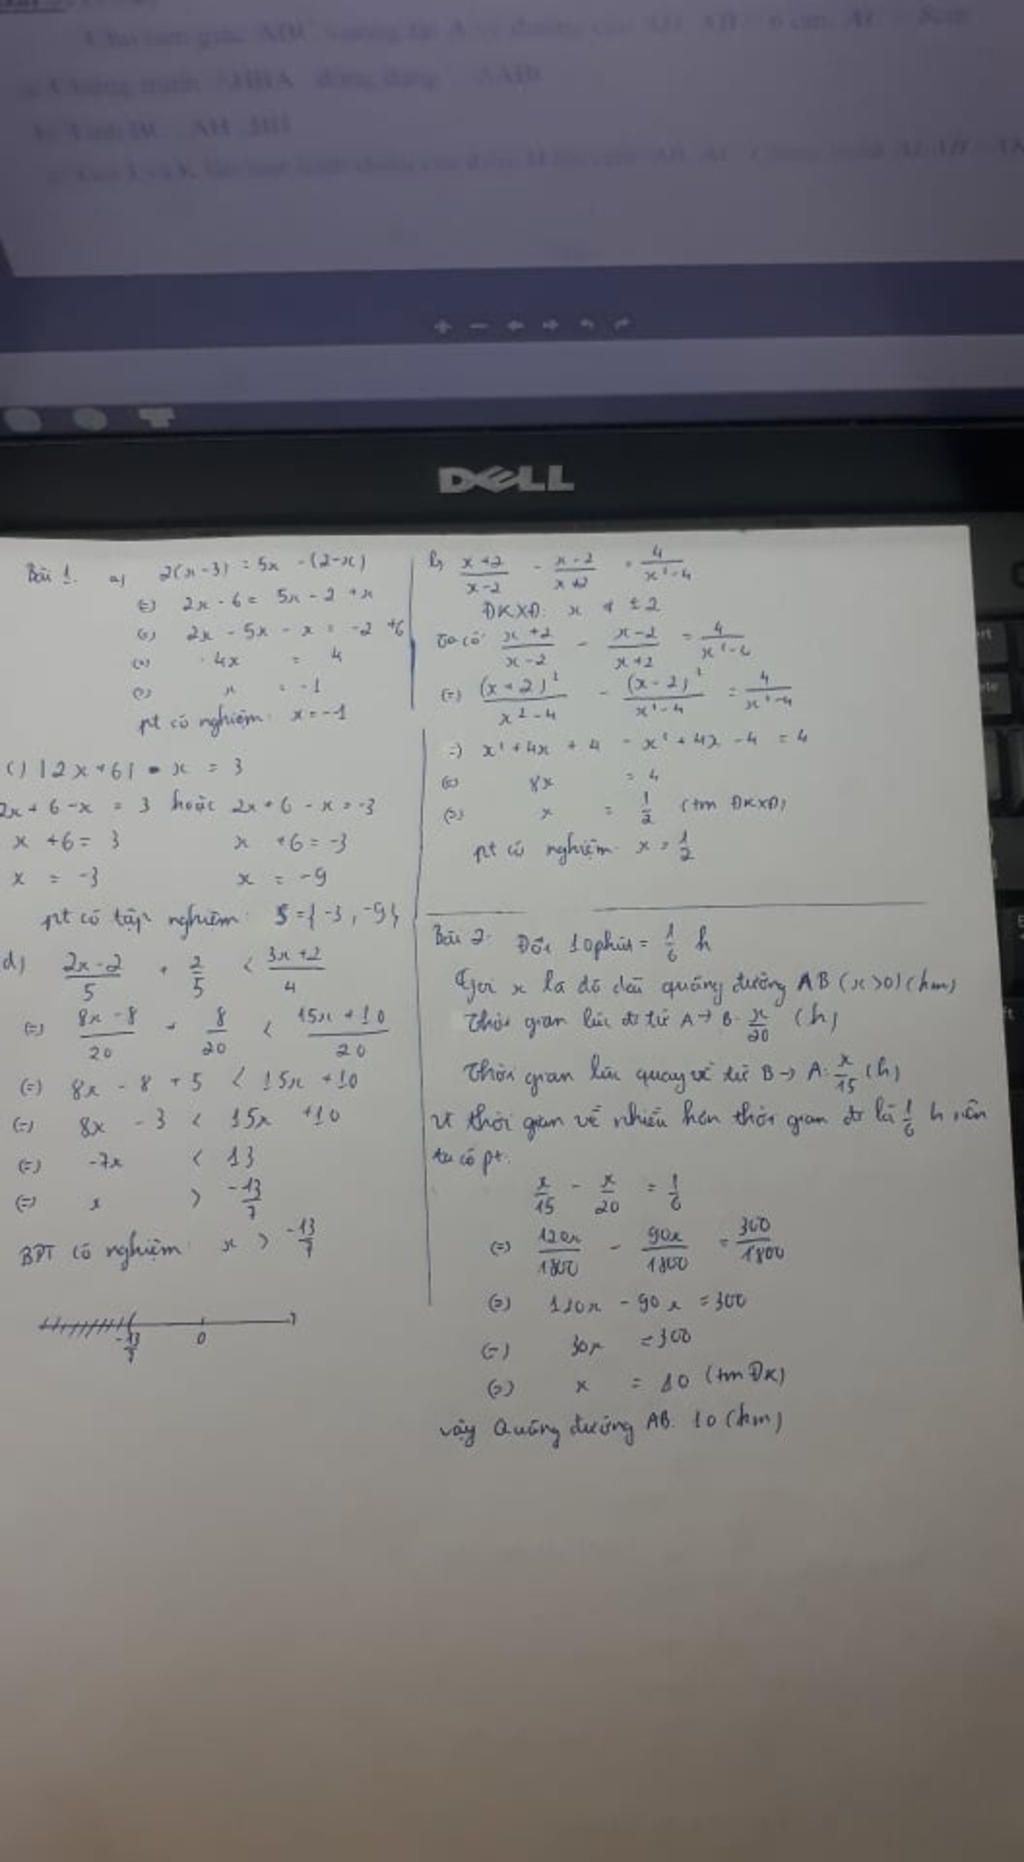 DELL
Bài 1. a) 2(x-3) = 5x - (2-x)
(=) 2x - 6 = 5x - 2 + x
(=) 2x - 5x - x = -2 + 6
(=) -4x = 4
(=) x = -1
pt có nghiệm: x = -1
c) |2x+6| - x = 3
2x + 6 - x = 3 hoặc 2x + 6 - x = -3
x + 6 = 3 x + 6 = -3
x = -3 x = -9
pt có tập nghiệm: S = {-3, -9}
d) (2x-2)/5 + 2/5 < (3x+2)/4
(=) (8x-8)/20 + 8/20 < (15x+10)/20
(=) 8x - 8 + 5 < 15x + 10
(=) 8x - 3 < 15x + 10
(=) -7x < 13
(=) x > -13/7
BPT có nghiệm: x > -13/7
-13/7 0
b) (x+2)/(x-2) - (x-2)/(x+2) = 4/(x²-4)
ĐKXĐ: x ≠ ±2
Ta có: (x+2)/(x-2) - (x-2)/(x+2) = 4/(x²-4)
(=) (x+2)²/(x²-4) - (x-2)²/(x²-4) = 4/(x²-4)
=) x² + 4x + 4 - x² + 4x - 4 = 4
(=) 8x = 4
(=) x = 1/2 (tm ĐKXĐ)
pt có nghiệm x = 1/2
Bài 2. Đổi 10 phút = 1/6 h
Gọi x là độ dài quãng đường AB (x>0) (km)
Thời gian lúc đi từ A → B: x/20 (h)
Thời gian lúc quay về từ B → A: x/15 (h)
Vì thời gian về nhiều hơn thời gian đi là 1/6 h nên
ta có pt:
x/15 - x/20 = 1/6
(=) 120x/1800 - 90x/1800 = 300/1800
(=) 120x - 90x = 300
(=) 30x = 300
(=) x = 10 (tm ĐK)
vậy Quãng đường AB: 10 (km)